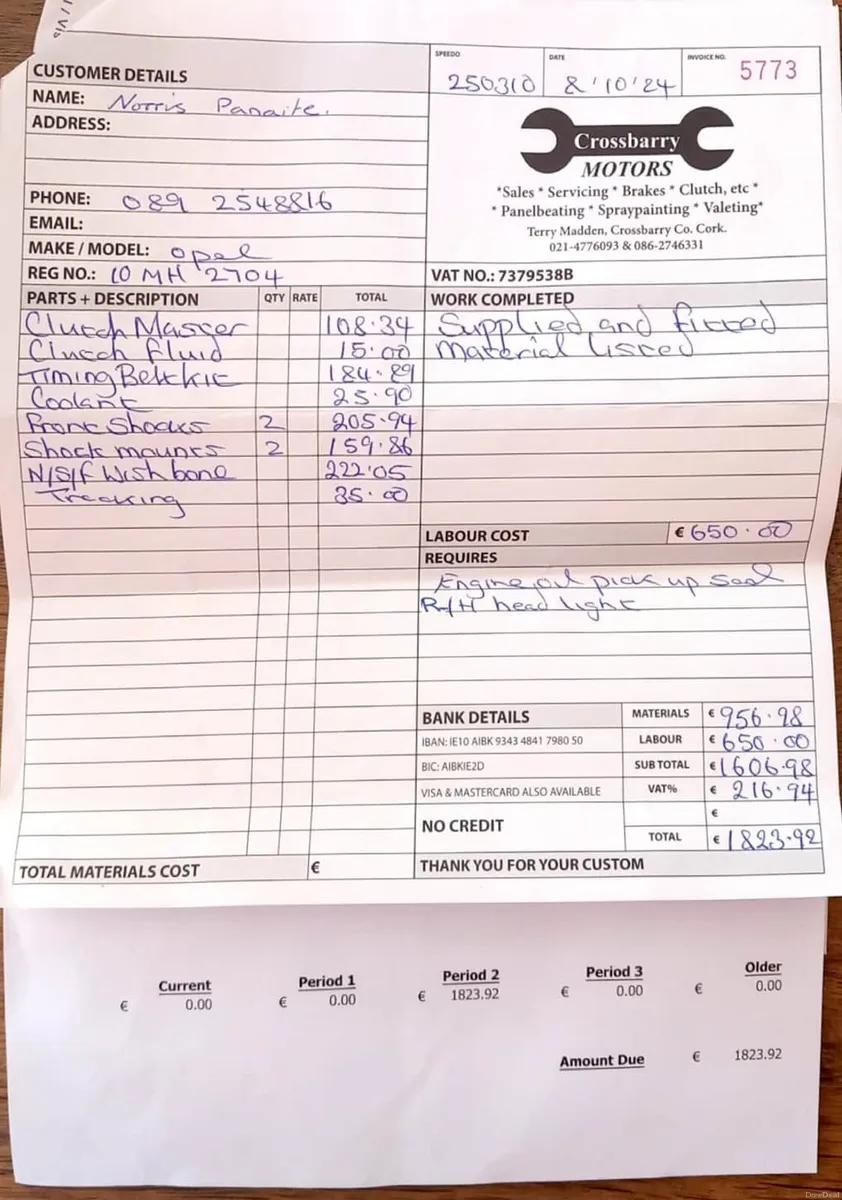 SPEEDO
250310
DATE
8'10'24
INVOICE NO.
5773
CUSTOMER DETAILS
NAME: Norris Panaite.
ADDRESS:
PHONE: 089 2548816
EMAIL:
MAKE / MODEL: Opel
REG NO.: 10 MH 2704
Crossbarry
MOTORS
*Sales * Servicing * Brakes * Clutch, etc *
* Panelbeating * Spraypainting * Valeting*
Terry Madden, Crossbarry Co. Cork.
021-4776093 & 086-2746331
VAT NO.: 7379538B
PARTS + DESCRIPTION QTY RATE TOTAL
Clutch Master 108.34
Clutch Fluid 15.00
Timing Belt kit 184.89
Coolant 25.90
Front Shocks 2 205.94
Shock mounts 2 159.86
N/S/F Wishbone 222.05
Tracking 35.00
TOTAL MATERIALS COST €
WORK COMPLETED
Supplied and fitted
Material listed
LABOUR COST € 650.00
REQUIRES
Engine oil pick up seal
R/H head light
BANK DETAILS
IBAN: IE10 AIBK 9343 4841 7980 50
BIC: AIBKIE2D
VISA & MASTERCARD ALSO AVAILABLE
NO CREDIT
MATERIALS € 956.98
LABOUR € 650.00
SUB TOTAL € 1606.98
VAT% € 216.94
€
TOTAL € 1823.92
THANK YOU FOR YOUR CUSTOM
Current Period 1 Period 2 Period 3 Older
€ 0.00 € 0.00 € 1823.92 € 0.00 € 0.00
Amount Due € 1823.92
DoneDeal